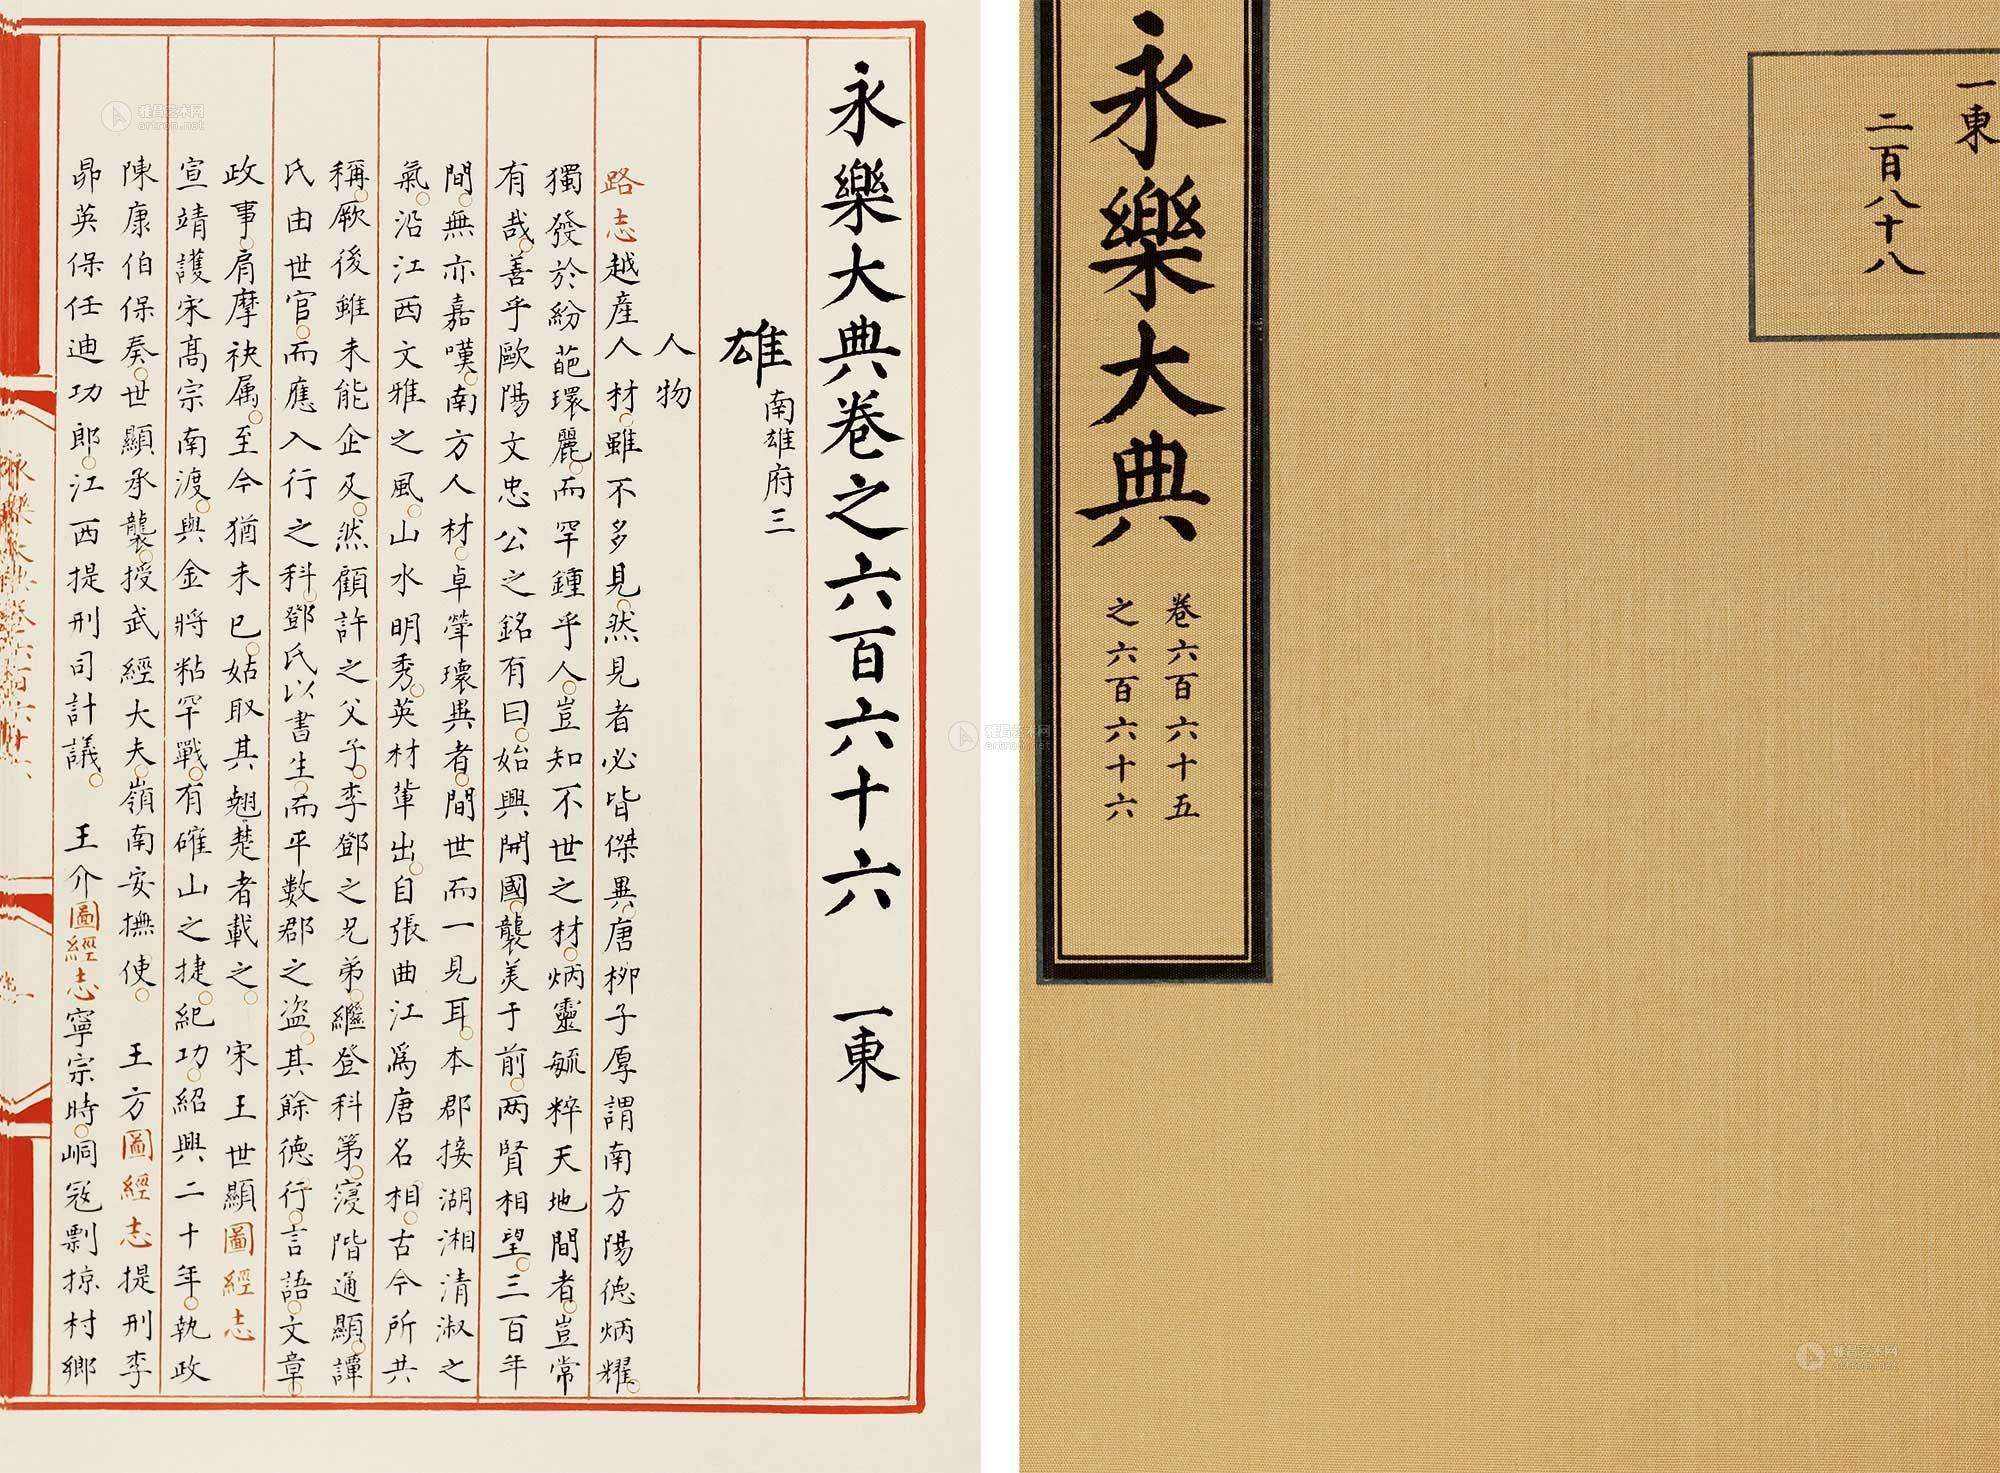 永樂大典卷之六百六十六 一東
雄 南雄府三
人物
路志越產人材雖不多見然見者必皆傑異唐柳子厚謂南方陽德炳耀
獨發於紛葩環麗而罕鍾乎人豈知不世之材炳靈毓粹天地間者豈常
有哉善乎歐陽文忠公之銘有曰始興開國襲美于前两賢相望三百年
間無亦嘉嘆南方人材卓犖瓌異者間世而一見耳本郡接湖湘清淑之
氣沿江西文雅之風山水明秀英材軰出自張曲江為唐名相古今所共
稱厥後雖未能企及然顧許之父子李鄧之兄弟繼登科第寖階通顯譚
氏由世官而應入行之科鄧氏以書生而平數郡之盗其餘德行言語文章
政事肩摩袂属至今猶未已姑取其翹楚者載之 宋王世顯圖經志
宣靖護宋髙宗南渡與金將粘罕戰有確山之捷紀功紹興二十年執政
陳康伯保奏世顯承襲授武經大夫嶺南安撫使 王方圖經志提刑李
昴英保任迪功郎江西提刑司計議 王介圖經志寧宗時峒冦剽掠村鄉
永樂大典卷六百六十六
永樂大典 卷六百六十五
之六百六十六
一東
二百八十八
雅昌艺术网
artron.net
雅昌艺术网
artron.net
雅昌艺术网
artron.net